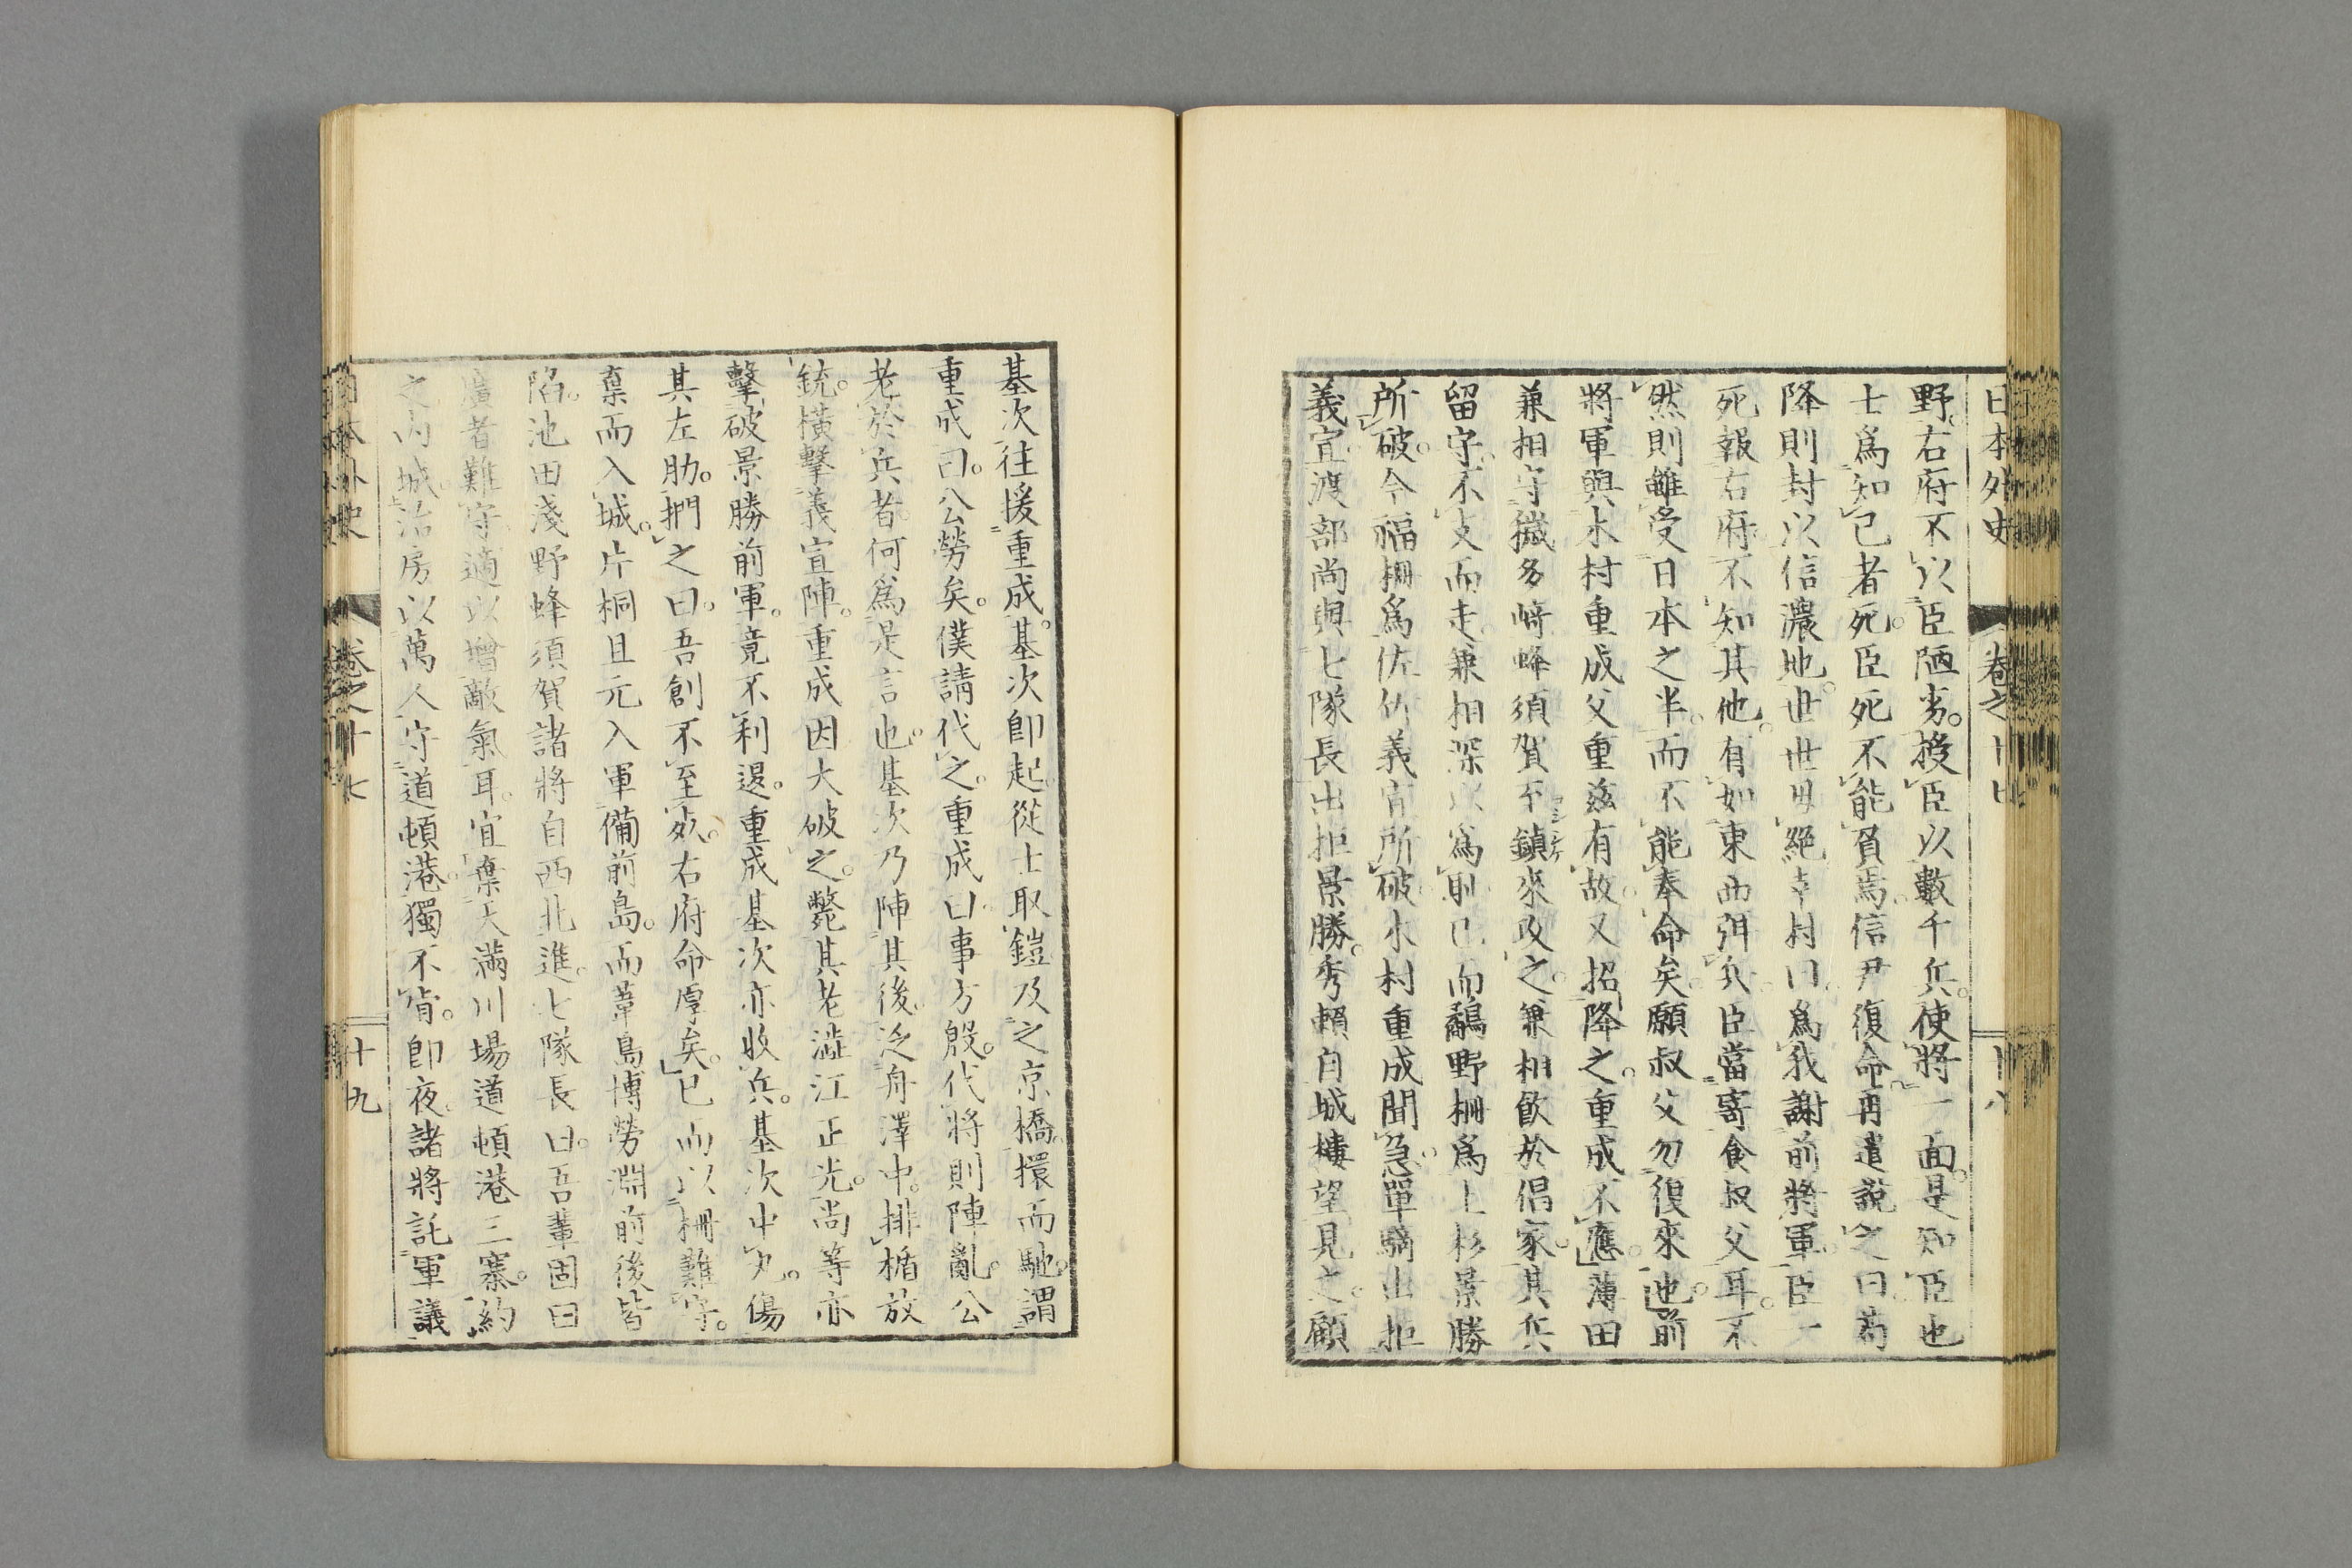 日本外史 卷之十七 十八
野。右府不以臣陋劣。授臣以數千兵。使將一面。是知臣也
士爲知己者死。臣死不能負焉。信尹復命。再遣說之曰。苟
降則封以信濃地。世世毋絕。幸村曰。爲我謝前將軍。臣一
死報右府。不知其他。有如東西弭兵。臣當寄食叔父耳。不
然則雖受日本之半。而不能奉命矣。願叔父勿復來也。前
將軍與木村重成父重茲有故。又招降之。重成不應。薄田
兼相守穢多崎。蜂須賀至鎮來攻之。兼相飲於倡家。其兵
留守。不支而走。兼相深以爲恥。已而鷸野柵爲上杉景勝
所破。今福柵爲佐竹義宣所破。木村重成聞急。單騎出拒
義宣。渡部尚與七隊長出拒景勝。秀賴自城樓望見之。顧
基次往援重成。基次卽起。從士取鎧及之京橋。擐而馳。謂
重成曰。公勞矣。僕請代之。重成曰。事方殷。代將則陣亂。公
老於兵者。何爲是言也。基次乃陣其後。泛舟澤中。排楯放
銃。橫擊義宣陣。重成因大破之。斃其老澁江正光。尚等亦
擊破景勝前軍。竟不利退。重成基次亦收兵。基次中丸。傷
其左肋。捫之曰。吾創不至死。右府命厚矣。已而以柵難守。
棄而入城。片桐且元入軍備前島。而葦島博勞淵前後皆
陷。池田淺野蜂須賀諸將自西北進。七隊長曰。吾輩固曰
廣者難守。適以增敵氣耳。宜棄天滿川場道頓港三寨。約
之內城。治房以萬人守道頓港。獨不肯。卽夜。諸將託軍議
日本外史 卷之十七 十九